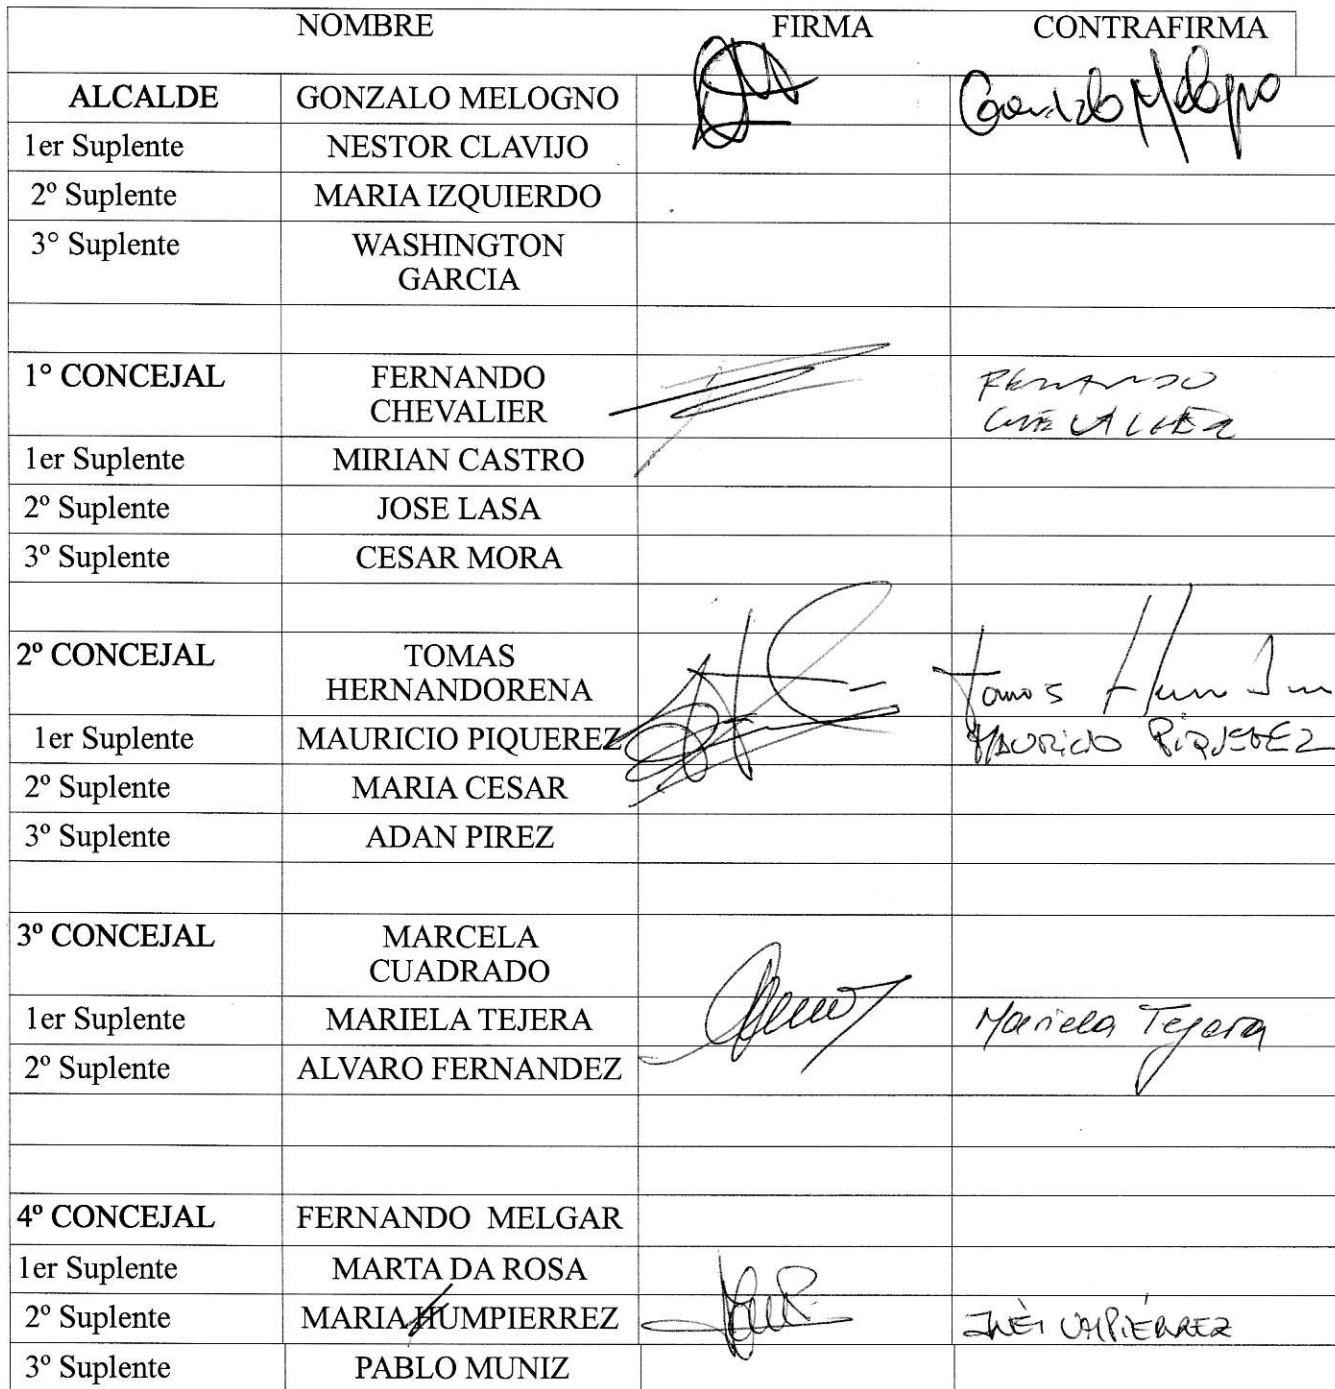 NOMBRE FIRMA CONTRAFIRMA
ALCALDE GONZALO MELOGNO Gonzalo Melogno
1er Suplente NESTOR CLAVIJO
2º Suplente MARIA IZQUIERDO
3° Suplente WASHINGTON
GARCIA
1° CONCEJAL FERNANDO FERNANDO
CHEVALIER CHEVALIER
1er Suplente MIRIAN CASTRO
2º Suplente JOSE LASA
3º Suplente CESAR MORA
2º CONCEJAL TOMAS
HERNANDORENA Tomas
1er Suplente MAURICIO PIQUEREZ MAURICIO PIQUEREZ
2º Suplente MARIA CESAR
3º Suplente ADAN PIREZ
3º CONCEJAL MARCELA
CUADRADO
1er Suplente MARIELA TEJERA Mariela Tejera
2º Suplente ALVARO FERNANDEZ
4º CONCEJAL FERNANDO MELGAR
1er Suplente MARTA DA ROSA
2º Suplente MARIA HUMPIERREZ INÉS UMPIÉRREZ
3º Suplente PABLO MUNIZ